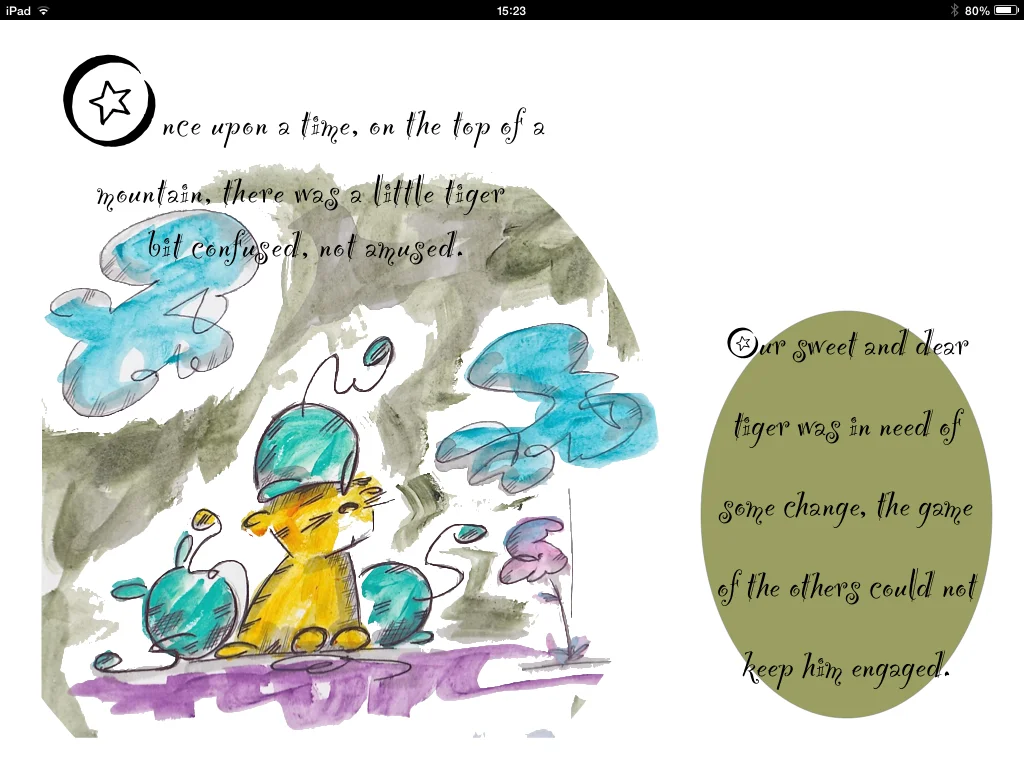 iPad 15:23 80%
Once upon a time, on the top of a
mountain, there was a little tiger
bit confused, not amused.
Our sweet and dear
tiger was in need of
some change, the game
of the others could not
keep him engaged.